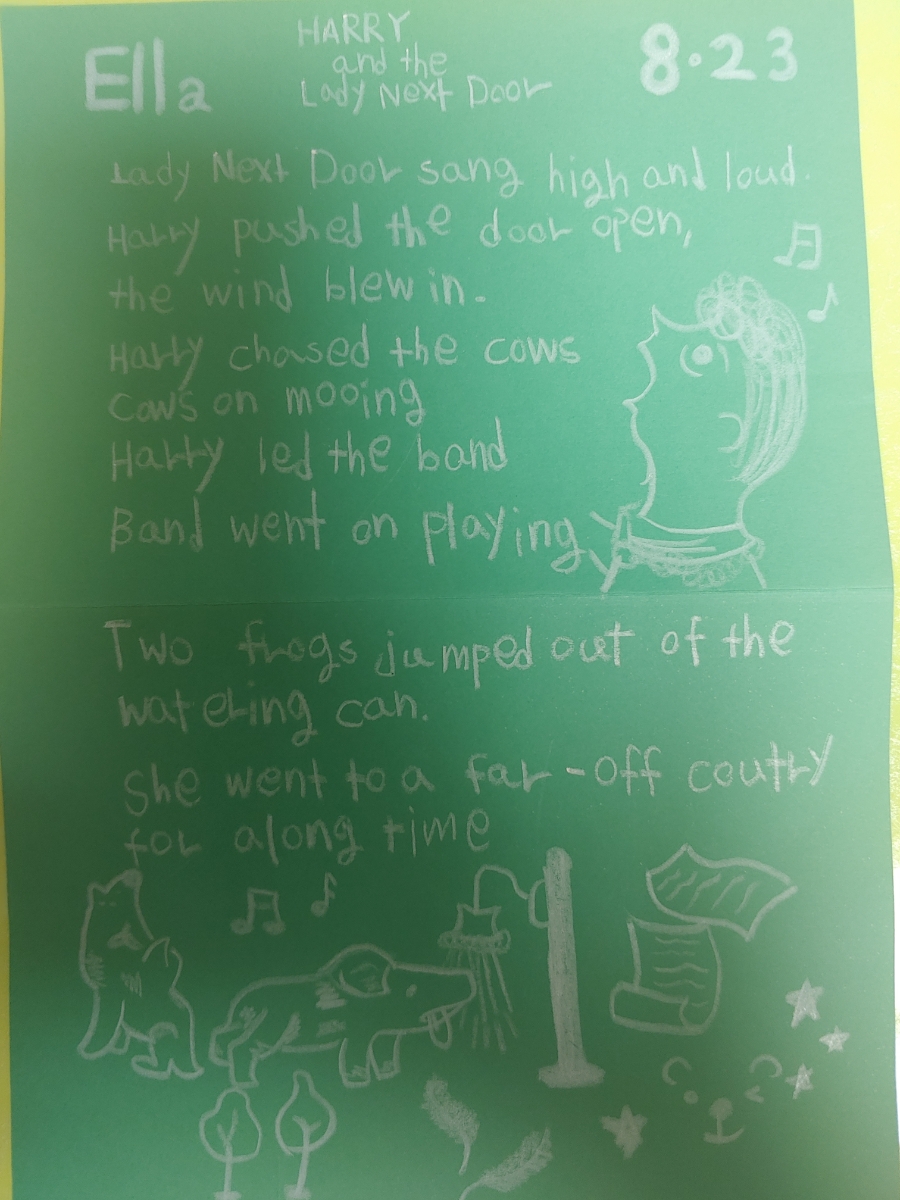 Ella
HARRY
and the
Lady Next Door
8.23
Lady Next Door sang high and loud.
Harry pushed the door open,
the wind blew in.
Harry chased the cows
Cows on mooing
Harry led the band
Band went on playing
Two frogs jumped out of the
watering can.
She went to a far-off coutry
for along time